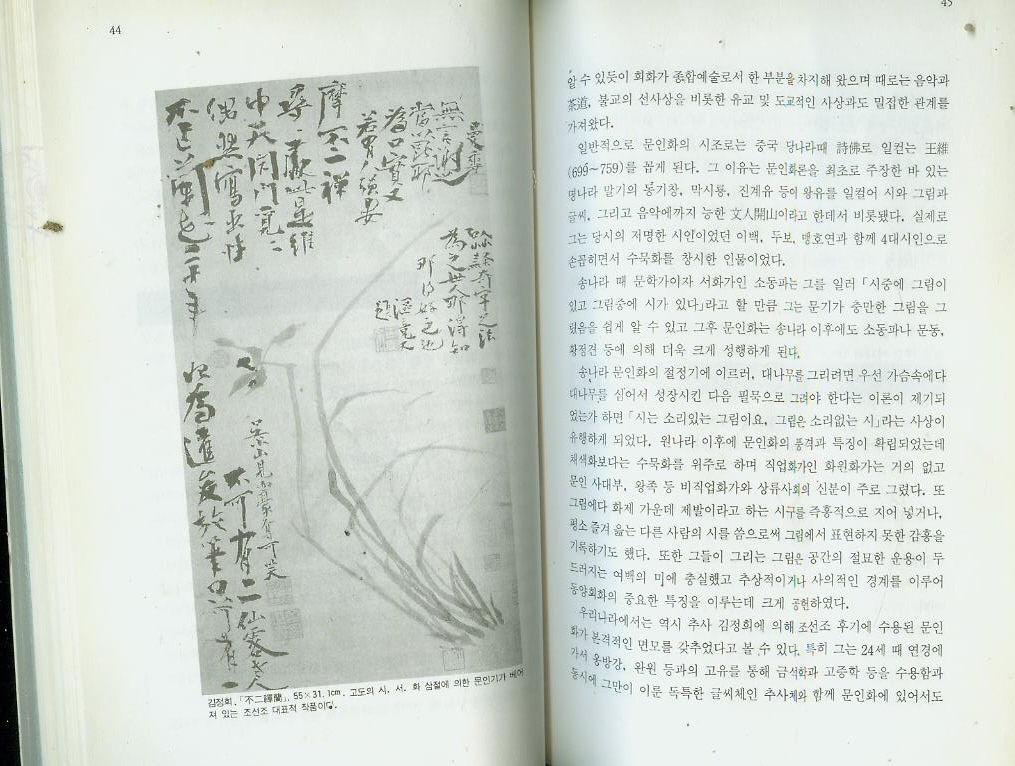 44
不作蘭花二十年
偶然寫出性
中天閉門覓覓
尋尋處此是維
摩不二禪
若有人强要
爲口實又
當以毘耶
無言謝之
曼香
以草隸奇字之法
爲之世人那得知
那得好之也
漚竟又
題
始爲達俊放筆只可有一
不可有二仙客老人
吳小山見而豪奪可笑
김정희. 「不二禪蘭」, 55×31.1cm. 고도의 시, 서, 화 삼절에 의한 문인기가 베어
져 있는 조선조 대표적 작품이다.
45
알 수 있듯이 회화가 종합예술로서 한 부분을 차지해 왔으며 때로는 음악과
茶道, 불교의 선사상을 비롯한 유교 및 도교적인 사상과도 밀접한 관계를
가져왔다.
일반적으로 문인화의 시조로는 중국 당나라때 詩佛로 일컫는 王維
(699~759)를 꼽게 된다. 그 이유는 문인화론을 최초로 주장한 바 있는
명나라 말기의 동기창, 막시룡, 진계유 등이 왕유를 일컬어 시와 그림과
글씨, 그리고 음악에까지 능한 文人開山이라고 한데서 비롯됐다. 실제로
그는 당시의 저명한 시인이었던 이백, 두보, 맹호연과 함께 4대시인으로
손꼽히면서 수묵화를 창시한 인물이었다.
송나라 때 문학가이자 서화가인 소동파는 그를 일러 「시중에 그림이
있고 그림중에 시가 있다」라고 할 만큼 그는 문기가 충만한 그림을 그
렸음을 쉽게 알 수 있고 그후 문인화는 송나라 이후에도 소동파나 문동,
황정견 등에 의해 더욱 크게 성행하게 된다.
송나라 문인화의 절정기에 이르러, 대나무를 그리려면 우선 가슴속에다
대나무를 심어서 성장시킨 다음 필묵으로 그려야 한다는 이론이 제기되
었는가 하면 「시는 소리있는 그림이요, 그림은 소리없는 시」라는 사상이
유행하게 되었다. 원나라 이후에 문인화의 풍격과 특징이 확립되었는데
채색화보다는 수묵화를 위주로 하며 직업화가인 화원화가는 거의 없고
문인 사대부, 왕족 등 비직업화가와 상류사회의 신분이 주로 그렸다. 또
그림에다 화제 가운데 제발이라고 하는 시구를 즉흥적으로 지어 넣거나,
평소 즐겨 읊는 다른 사람의 시를 씀으로써 그림에서 표현하지 못한 감흥을
기록하기도 했다. 또한 그들이 그리는 그림은 공간의 절묘한 운용이 두
드러지는 여백의 미에 충실했고 추상적이거나 사의적인 경계를 이루어
동양회화의 중요한 특징을 이루는데 크게 공헌하였다.
우리나라에서는 역시 추사 김정희에 의해 조선조 후기에 수용된 문인
화가 본격적인 면모를 갖추었다고 볼 수 있다. 특히 그는 24세 때 연경에
가서 옹방강, 완원 등과의 교유를 통해 금석학과 고증학 등을 수용함과
동시에 그만이 이룬 독특한 글씨체인 추사체와 함께 문인화에 있어서도